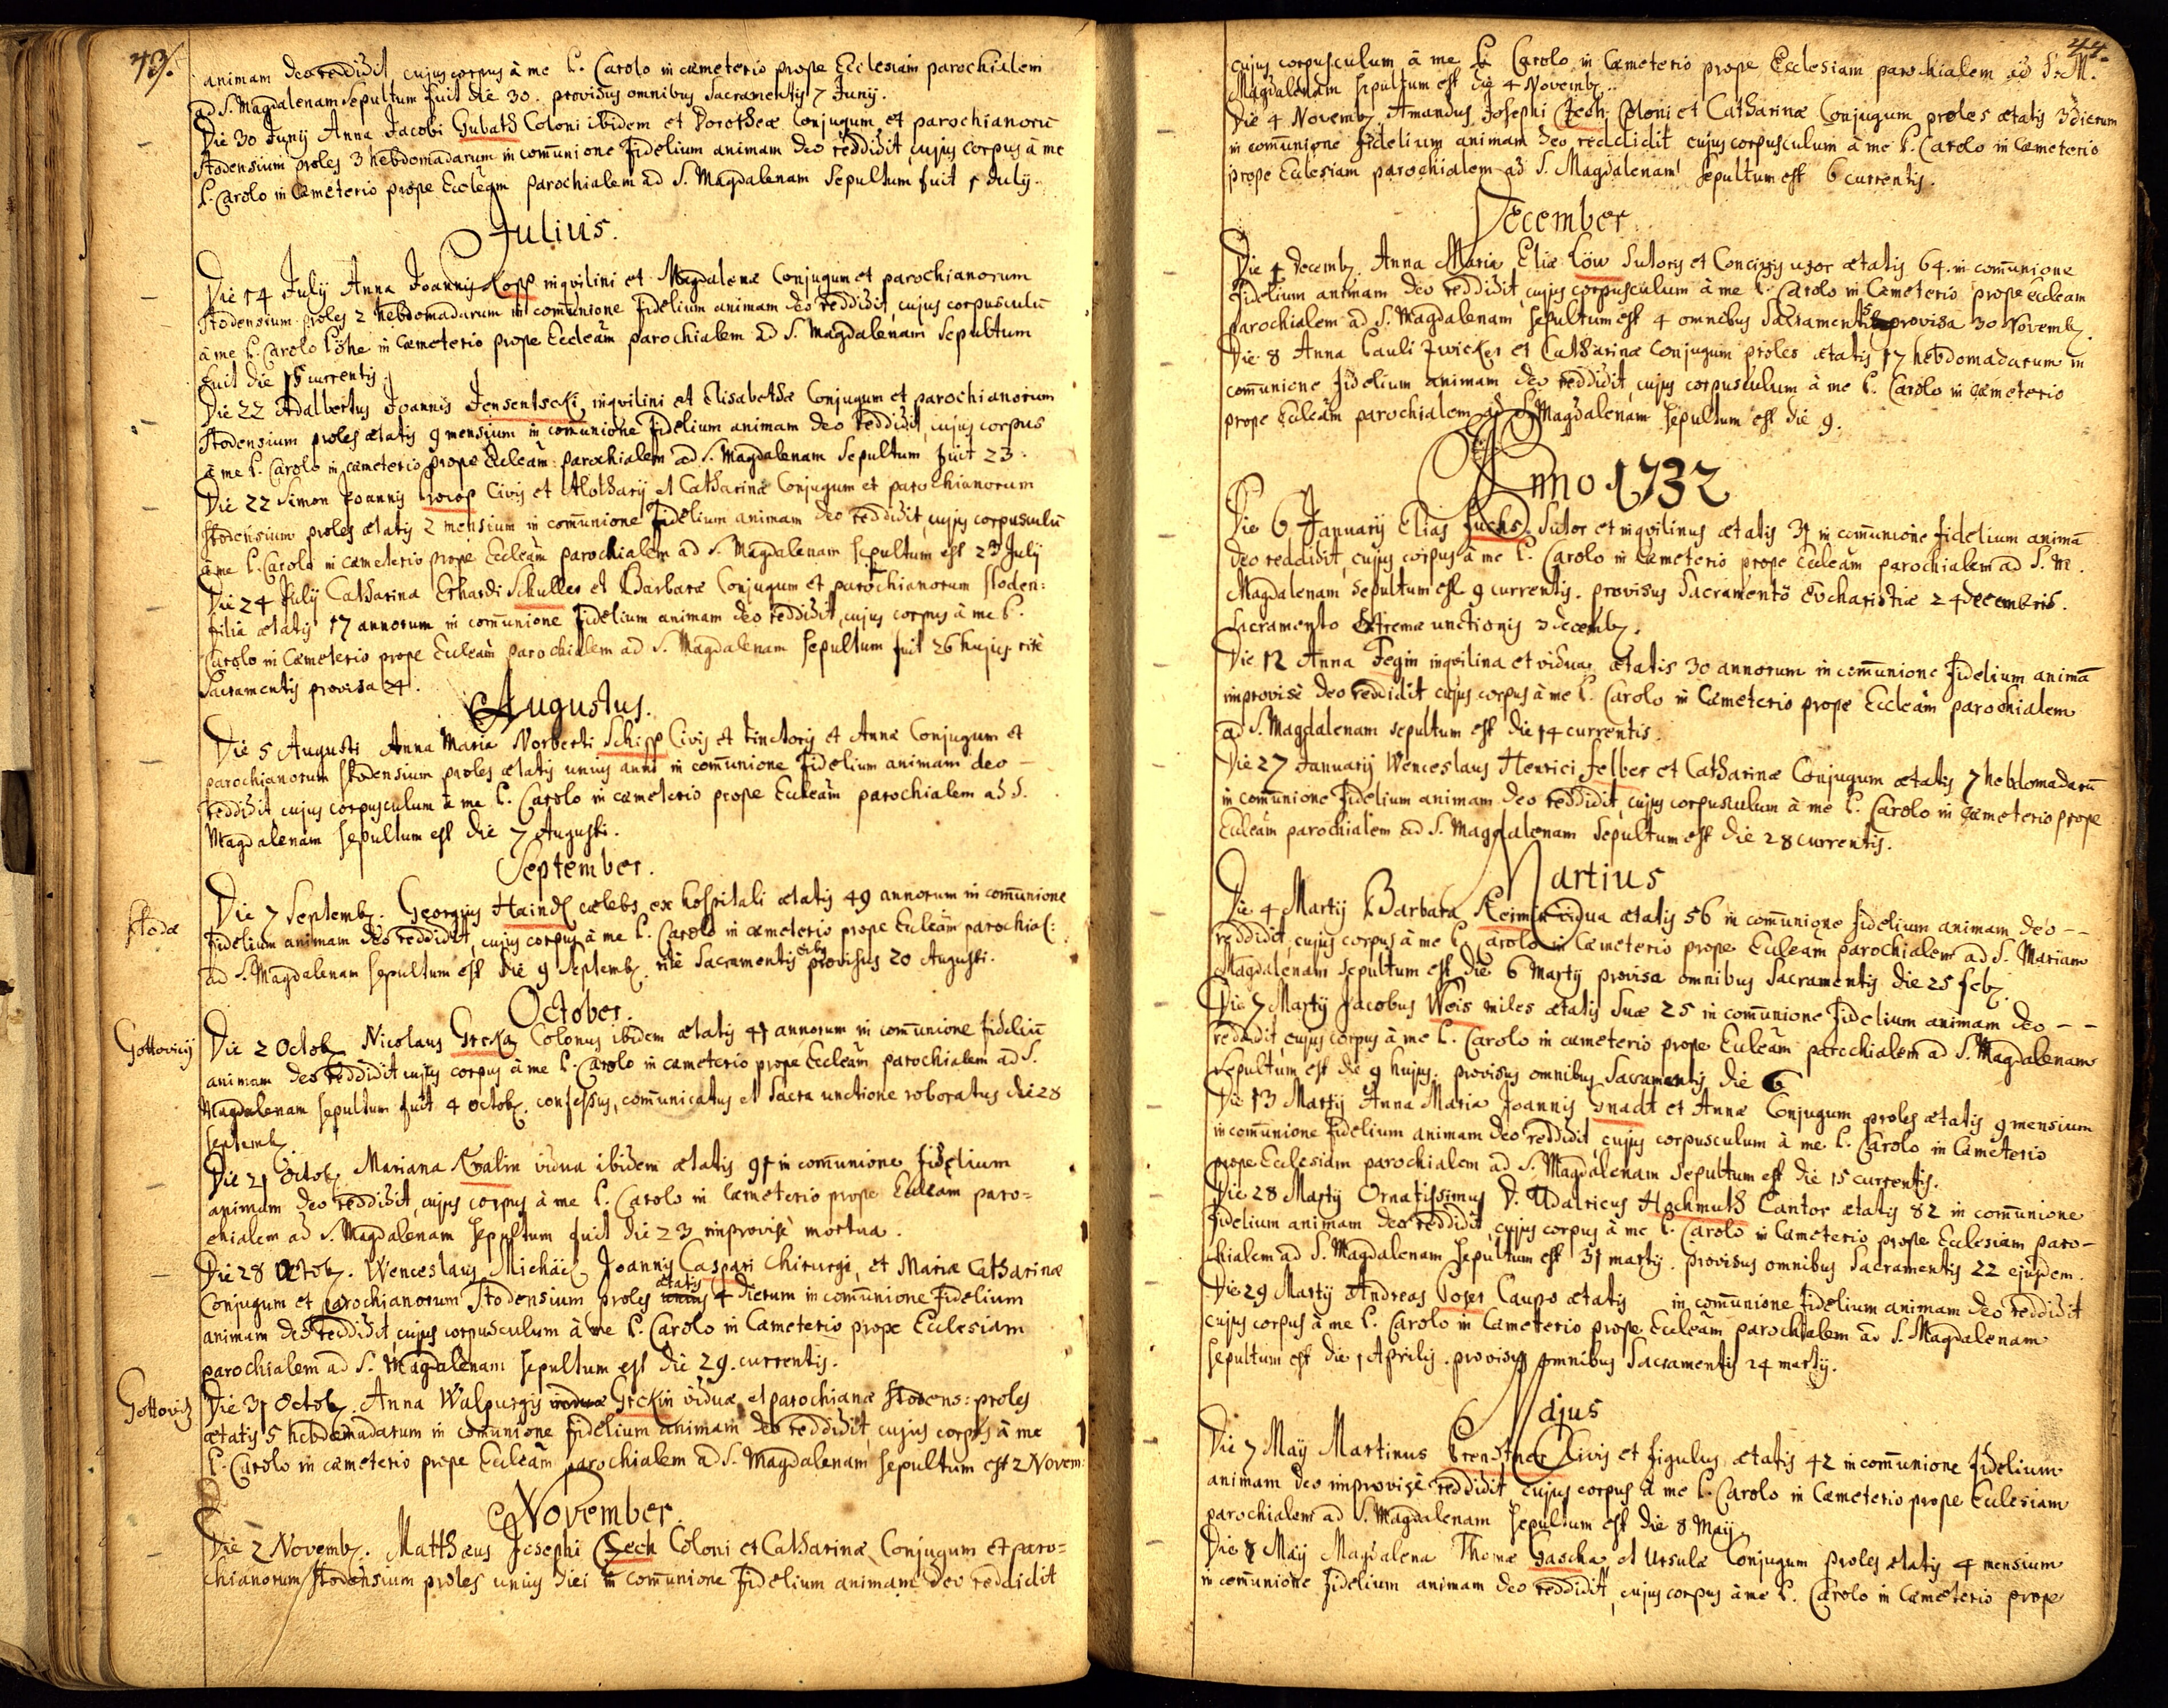 43.
animam deo reddidit, cujus corpus à me P. Carolo in cæmeterio prope Ecclesiam parochialem
ad S. Magdalenam Sepultum fuit die 30. provisus omnibus Sacramentis 7 Junij.
Die 30 Junij Anna Jacobi Gubath Coloni ibidem et Dorotheæ Conjugum et parochianorū
Stodensium proles 3 hebdomadarum in com̄unione fidelium animam deo reddidit, cujus corpus à me
P. Carolo in Cæmeterio prope Eccleam parochialem ad S. Magdalenam Sepultum fuit 1 July.
Julius.
Die 14 July Anna Joannis Kopp inqvilini et Magdalenæ Conjugum et parochianorum
Stodensium proles 2 hebdomadarum in com̄unione fidelium animam deo reddidit, cujus corpusculū
à me P. Carolo Löhe in Cæmeterio prope Eccleam parochialem ad S. Magdalenam Sepultum
fuit die 15 currentis.
Die 22 Adalbertus Joannis Jensentscki, inqvilini et Elisabethæ Conjugum et parochianorum
Stodensium proles ætatis 9 mensium in com̄unione fidelium animam deo reddidit, cujus corpus
à me P. Carolo in cæmeterio prope Eccleam parochialem ad S. Magdalenam Sepultum fuit 23.
Die 22 Simon Joannis Civis et et Catharinæ Conjugum et parochianorum
Stodensium proles ætatis 2 mensium in com̄unione fidelium animam deo reddidit, cujus corpusculū
à me P. Carolo in cæmeterio prope Eccleam parochialem ad S. Magdalenam Sepultum est 23 July
Die 24 July Catharina Erhardi Schuller et Barbaræ Conjugum et parochianorum stoden:
filia ætatis 17 annorum in com̄unione fidelium animam deo reddidit, cujus corpus à me P.
Carolo in Cæmeterio prope Eccleam parochialem ad S. Magdalenam Sepultum fuit 26 hujus ritè
Sacramentis provisa 24.
Augustus.
Die 5 Augusti Anna Maria Norberti Schipp Civis et tinctoris et Annæ Conjugum et
parochianorum Stodensium proles ætatis unius anni in com̄unione fidelium animam deo –
reddidit cujus corpusculum à me P. Carolo in cæmeterio prope Eccleam parochialem ad S.
Magdalenam Sepultum est die 7 Augusti.
September.
Stodæ
Die 7 Septemb. Georgius Haindl cælebs ex hospitali ætatis 49 annorum in com̄unione
fidelium animam deo reddidit, cujus corpus à me P. Carolo in cæmeterio prope Eccleam parochial:
ad S. Magdalenam Sepultum est die 9 Septemb. ritè Sacramentis provisus 20 Augusti.
October.
Gottovicij
Die 2 Octob. Nicolaus Colonus ibidem ætatis 41 annorum in com̄unione fideliū
animam deo reddidit cujus corpus à me P. Carolo in cæmeterio prope Eccleam parochialem ad S.
Magdalenam Sepultum fuit 4 Octob. confessus, com̄unicatus et Sacra unctione roboratus die 28
Septemb.
Die 21 Octob. Mariana vidua ibidem ætatis 91 in com̄unione fidelium
animam deo reddidit, cujus corpus à me P. Carolo in Cæmeterio prope Eccleam paro=
chialem ad S. Magdalenam Sepultum fuit die 23 improvisè mortua.
Die 28 Octob. Wenceslaus Michäel Joannis Caspari Chirurgi, et Mariæ Catharinæ
ætatis
Conjugum et Parochianorum Stodensium proles 4 dierum in com̄unione fidelium
animam deo reddidit, cujus corpusculum à me P. Carolo in Cæmeterio prope Ecclesiam
parochialem ad S. Magdalenam Sepultum est die 29. currentis.
Gottovitz
Die 31 Octob. Anna Walpurgis Grekin viduæ et parochianæ Stodens: proles
ætatis 5 hebdomadarum in com̄unione fidelium animam deo reddidit, cujus corpus à me
P. Carolo in cæmeterio prope Eccleam parochialem ad S. Magdalenam Sepultum est 2 Novem:
November.
Die 2 Novemb. Matthæus Josephi Czech Coloni et Catharinæ Conjugum et paro=
chianorum Stodensium proles unius diei in com̄unione fidelium animam deo reddidit
44.
cujus corpusculum à me P. Carolo in Cæmeterio prope Ecclesiam parochialem ad S. M.
Magdalenam Sepultum est die 4 Novemb.
Die 4 Novemb. Amandus Josephi Czech Coloni et Catharinæ Conjugum proles ætatis 3 dierum
in com̄unione fidelium animam deo reddidit cujus corpusculum à me P. Carolo in Cæmeterio
prope Ecclesiam parochialem ad S. Magdalenam Sepultum est 6 currentis.
December
Die 1 Decemb. Anna Maria Eliæ Löw Sutoris et Concivis uxor ætatis 64. in com̄unione
fidelium animam deo reddidit, cujus corpusculum à me P. Carolo in Cæmeterio prope eccleam
parochialem ad S. Magdalenam Sepultum est 4 omnibus Sacramentis provisa 30 Novemb.
Die 8 Anna Pauli Zwicker et Catharinæ Conjugum proles ætatis 17 hebdomadarum in
com̄unione fidelium animam deo reddidit, cujus corpusculum à me P. Carolo in cæmeterio
prope Eccleam parochialem ad S. Magdalenam Sepultum est die 9.
Anno 1732
Die 6 January Elias Fuchs Sutor et inqvilinus ætatis 31 in com̄unione fidelium animā
deo reddidit, cujus corpus à me P. Carolo in Cæmeterio prope Eccleam parochialem ad S. M.
Magdalenam Sepultum est 9 currentis. provisus Sacramento Eucharistiæ 24 decembris.
Sacramento Extremæ unctionis 3 decemb.
Die 12 Anna Fegin inqvilina et vidua ætatis 30 annorum in com̄unione fidelium animā
improvisè deo reddidit cujus corpus à me P. Carolo in Cæmeterio prope Eccleam parochialem
ad S. Magdalenam sepultum est die 14 currentis.
Die 27 Januarij Wenceslaus Henrici Felber et Catharinæ Conjugum ætatis 7 hebdomadarū
in com̄unione fidelium animam deo reddidit, cujus corpusculum à me P. Carolo in cæmeterio prope
Eccleam parochialem ad S. Magdalenam Sepultum est die 28 currentis.
Martius
Die 4 Martij Barbara Keimin vidua ætatis 56 in com̄unione fidelium animam deo --
reddidit, cujus corpus à me P. Carolo in Cæmeterio prope Eccleam parochialem ad S. Mariam
Magdalenam Sepultum est die 6 Martij provisa omnibus Sacramentis die 25 feb.
Die 7 Martij Jacobus Weis miles ætatis suæ 25 in com̄unione fidelium animam deo --
reddidit, cujus corpus à me P. Carolo in cæmeterio prope Eccleam parochialem ad S. Magdalenam
Sepultum est die 9 hujus. provisus omnibus Sacramentis die 6
Die 13 Martij Anna Maria Joannis et Annæ Conjugum proles ætatis 9 mensium
in com̄unione fidelium animam deo reddidit, cujus corpusculum à me P. Carolo in Cæmeterio
prope Ecclesiam parochialem ad S. Magdalenam Sepultum est die 15 currentis.
Die 28 Martij Ornatissimus D. Udalricus Hochmuth Cantor ætatis 82 in com̄unione
fidelium animam deo reddidit, cujus corpus à me P. Carolo in Cæmeterio prope Ecclesiam paro-
chialem ad S. Magdalenam Sepultum est 31 martij. provisus omnibus Sacramentis 22 ejusdem.
Die 29 Martij Andreas Poser Caupo ætatis in com̄unione fidelium animam deo reddidit
cujus corpus à me P. Carolo in Cæmeterio prope Eccleam parochialem ad S. Magdalenam
Sepultum est die 1 Aprilis. provisus omnibus Sacramentis 24 martij.
Majus
Die 7 Maÿ Martinus Civis et figulus ætatis 42 in com̄unione fidelium
animam deo improvisè reddidit cujus corpus à me P. Carolo in Cæmeterio prope Ecclesiam
parochialem ad S. Magdalenam Sepultum est die 8 Maÿ
Die 8 Maÿ Magdalena Thomæ Gascha et Ursulæ Conjugum proles ætatis 4 mensium
in com̄unione fidelium animam deo reddidit, cujus corpus à me P. Carolo in Cæmeterio prope